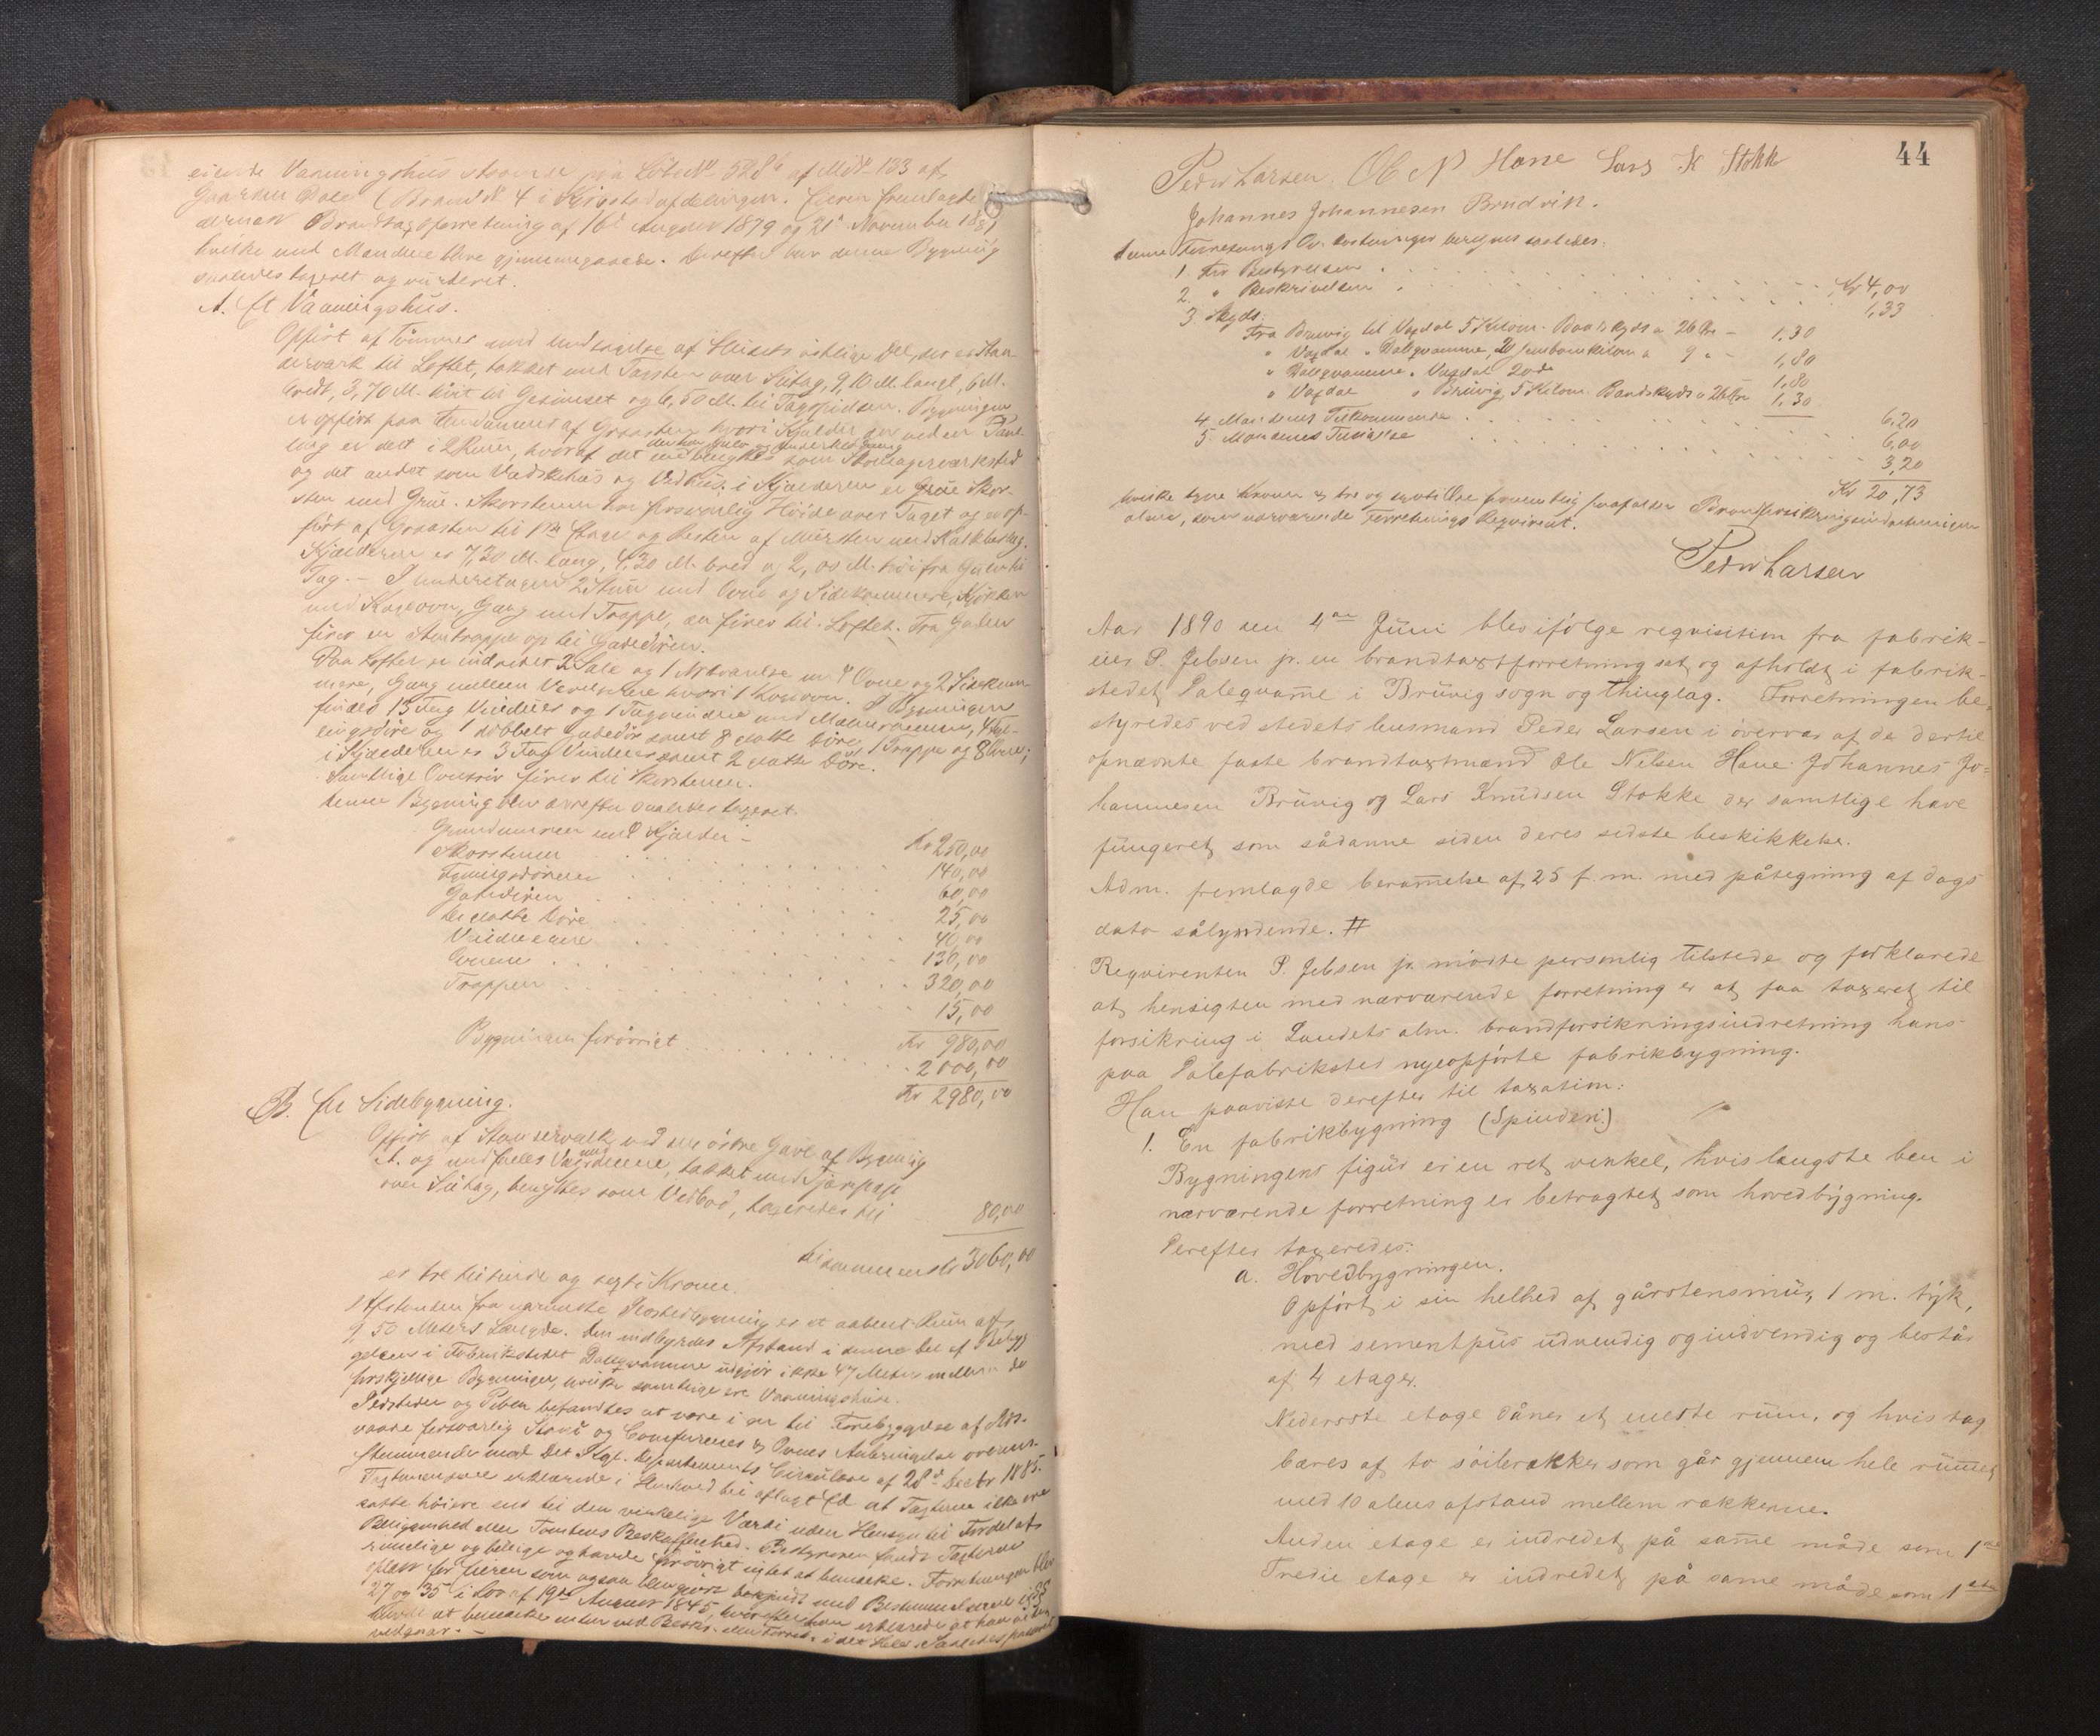 eiende Vaaningshus staaende paa Löbe No 528b af Mt No 133 af
Gaarden Dale (Brand No 4 i Kirkestedafdelingen. Eieren fremlagde
dernæst Brandtaxtforretning af 16de August 1879 og 21de November 1887
hvilke med Mændene blive gjennemgaaede. Derefter har denne Bygning
saaledes taxeret og vurderet.
A. Et Vaaningshus.
Opfört af Tömmer med Undtagelse af Husets östlige Del, der er Stan-
derværk til Loftet, tækket med Tagsten over Sutag, 9,10 M. langt, 6 M.
bredt, 3,70 M. höit til Gesimset og 6,50 M. til Tagspidsen. Bygningen
er opfört paa Grundmur af Graasten hvori Kjelder der ved en Pane-
ling er delt i 2 Rum, hvoraf det ene benyttes som Skomagerværksted
og det andet som Vadskehus og Vedhus. i Kjælderen er Grue Skor-
sten med Grue. Skorstenen har forsvarlig Höide over Taget og er op-
fört af Graasten til 1ste Etage og Resten af Mursten med Kalkbeslag.
Kjælderen er 7,20 M. lang, 4,30 M. bred og 2,00 M. höi fra Gulv til
Tag. – I underetagen 2 Stuer med Ovne og Sidekammere, Kjökken
med Kogeovn, Gang med Trappe, der förer til Loftet. Fra Gaden
förer en Stentrappe op til Gadedören.
Paa Loftet er indredet 2 Sale og 1 Arkværelse med Ovne og 2 Sidekam-
mere, Gang mellem Værelserne hvori 1 Kogeovn. I Bygningen
findes 13 Fag Vinduer og 1 Tagvindue med Malerarbeide, 4 Fyl-
lingsdöre og 1 dobbelt Gadedör samt 8 glatte Döre, 1 Trappe og 8 Ovne;
i Kjælderen er 3 Fag Vinduer samt 2 glatte Döre.
Samtlige Ovnsrör förer til Skorstenen.
Denne Bygning blev derefter saaledes taxeret.
Grundmuren med Kjælder – Kr 250,00
Skorstenen . . . 140,00
Fyllingsdörene . . . 60,00
Gadedören . . . 25,00
De glatte Döre . . . 40,00
Vinduerne . . . 130,00
Ovnene . . . 320,00
Trappen . . . 15,00
Kr 980,00
Bygningen forövrigt . . . 2000,00
Kr 2980,00
B. En Sidebygning.
Opfört af Standerverk ved den östre Gavl af Bygning
A. og med fælles Væg med denne, tækket med Tjærepap
over Sutag, benyttes som Vedbod, taxeredes til 80,00
Tilsammen Kr 3060,00
er tre tusinde og sexti Kroner.
Afstanden fra nærmeste Stedbygning er et aabent Rum af
9,50 Meters Længde. Den indbyrdes Afstand i denne Del af Bebyg-
gelsen i Fabrikstedet Daleqvamme udgjör ikke 47 Meter mellem de
forskjellige Bygninger, hvilke samtlige ere Vaaningshuse.
Ildstedet og Piben befandtes at være i en til Forebyggelse af Ilds-
vaade forsvarlig Stand og Comfurenes & Ovnes Anbringelse overens-
stemmende med Det Kgl. Departements Circulære af 28de Decbr 1885.
Taxtmændene erklærede i Henhold til aflagt Ed at Taxterne ikke ere
satte höiere end til den virkelige Værdi uden Hensyn til Fordelagt-
Beliggenhed eller Tomtens Beskaffenhed. Bestyreren fandt Taxterne
rimelige og billige og havde forövrigt intet at bemærke. Forretningen blev
oplæst for Eieren som ogsaa blev gjort bekjendt med Bestemmelserne i §§
27 og 35 i Lov af 19de August 1845, hvorefter han erklærede at han ei
havde at bemærke enten ved Beskr. eller Forret. i det Hele. Saaledes passeret
vedgaar. –
44
Peder Larsen. Ole N Hane Lars K Stokk
Johannes Johannesen Brudvik.
Denne Forretnings Omkostninger beregnes saaledes:
1. For Bestyrelsen . . . Kr 4,00
2. " Beskrivelsen . . . 1,33
3. Skyds:
Fra Bruvig til Vaxdal 5 Kilom. Baadskyds a 26 Öre – 1,30
" Vaxdal " Daleqvamme, 20 Jernbanekilom a 9 " – 1,80
" Daleqvamme " Vaxdal 20 do 1,80
" Vaxdal " Bruvig, 5 Kilom. Baadskyds a 26 Öre 1,30
6,20
4. Mændenes Tilkommende . . . 6,00
5. Mændenes . . . 3,20
Kr 20,73
hvilke tyve Kroner & tre og sytti Öre foreløbig paafalder Brandforsikringsindretningen
alene, som nærværende Forretnings Reqvirent.
Peder Larsen
Aar 1890 den 4de Juni blev ifölge reqvisition fra fabrik-
eier P. Jebsen jr. en brandtaxtforretning sat og afholdt i fabrik-
stedet Daleqvamme i Brüvig sogn og thinglag. Forretningen be-
styredes ved stedets lensmand Peder Larsen i overvær af de dertil
opnævnte faste brandtaxtmænd Ole Nilsen Hane Johannes Jo-
hannesen Brüvig og Lars Knudsen Stokke der samtlige have
fungeret som sådanne siden deres sidste beskikkelse.
Adm. fremlagde berammelse af 25 f. m. med påtegning af dags
dato sålydende. #
Reqvirenten P. Jebsen jr. mødte personlig tilstede og forklarede
at hensigten med nærværende forretning er at faa taxeret til
forsikring i Landets alm. brandforsikringsindretning hans
paa Dalefabriksted nyeopførte fabrikbygning.
Han paaviste derefter til taxation:
1. En fabrikbygning (Spinderi.)
Bygningens figur er en ret vinkel, hvis længste ben i
nærværende forretning er betragtet som hovedbygning.
Derefter taxeredes:
a. Hovedbygningen.
Opført i sin helhed af gråstensmur, 1 m. tyk,
med sementpus udvendig og indvendig og består
af 4 etager.
Nederste etage danner et eneste rum, og hvis tag
bæres af to söilerækker som går gjennem hele rummet
med 10 alens afstand mellem rækkerne.
Anden etage er indredet på same måde som 1ste
Tredie etage er indredet på same måde som 1ste